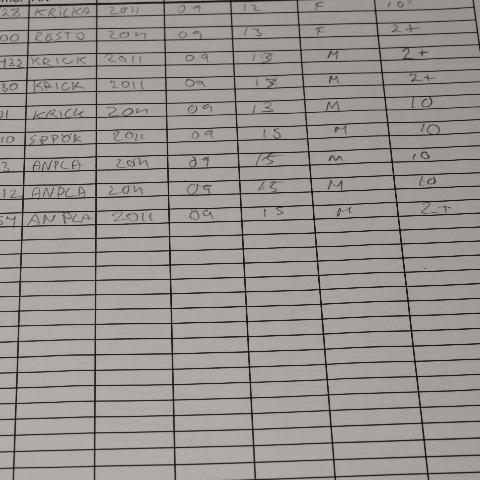 28 KRICKA 2011 09 12 F 10
00 ROSTO 2011 09 13 F 2+
732 KRICK 2011 09 13 M 2+
30 KRICK 2011 09 13 M 2+
31 KRICK 2011 09 13 M 10
10 SPPÖK 2011 09 15 M 10
3 ANPLA 2011 09 15 M 10
12 ANPLA 2011 09 15 M 10
54 ANPLA 2011 09 15 M 2+